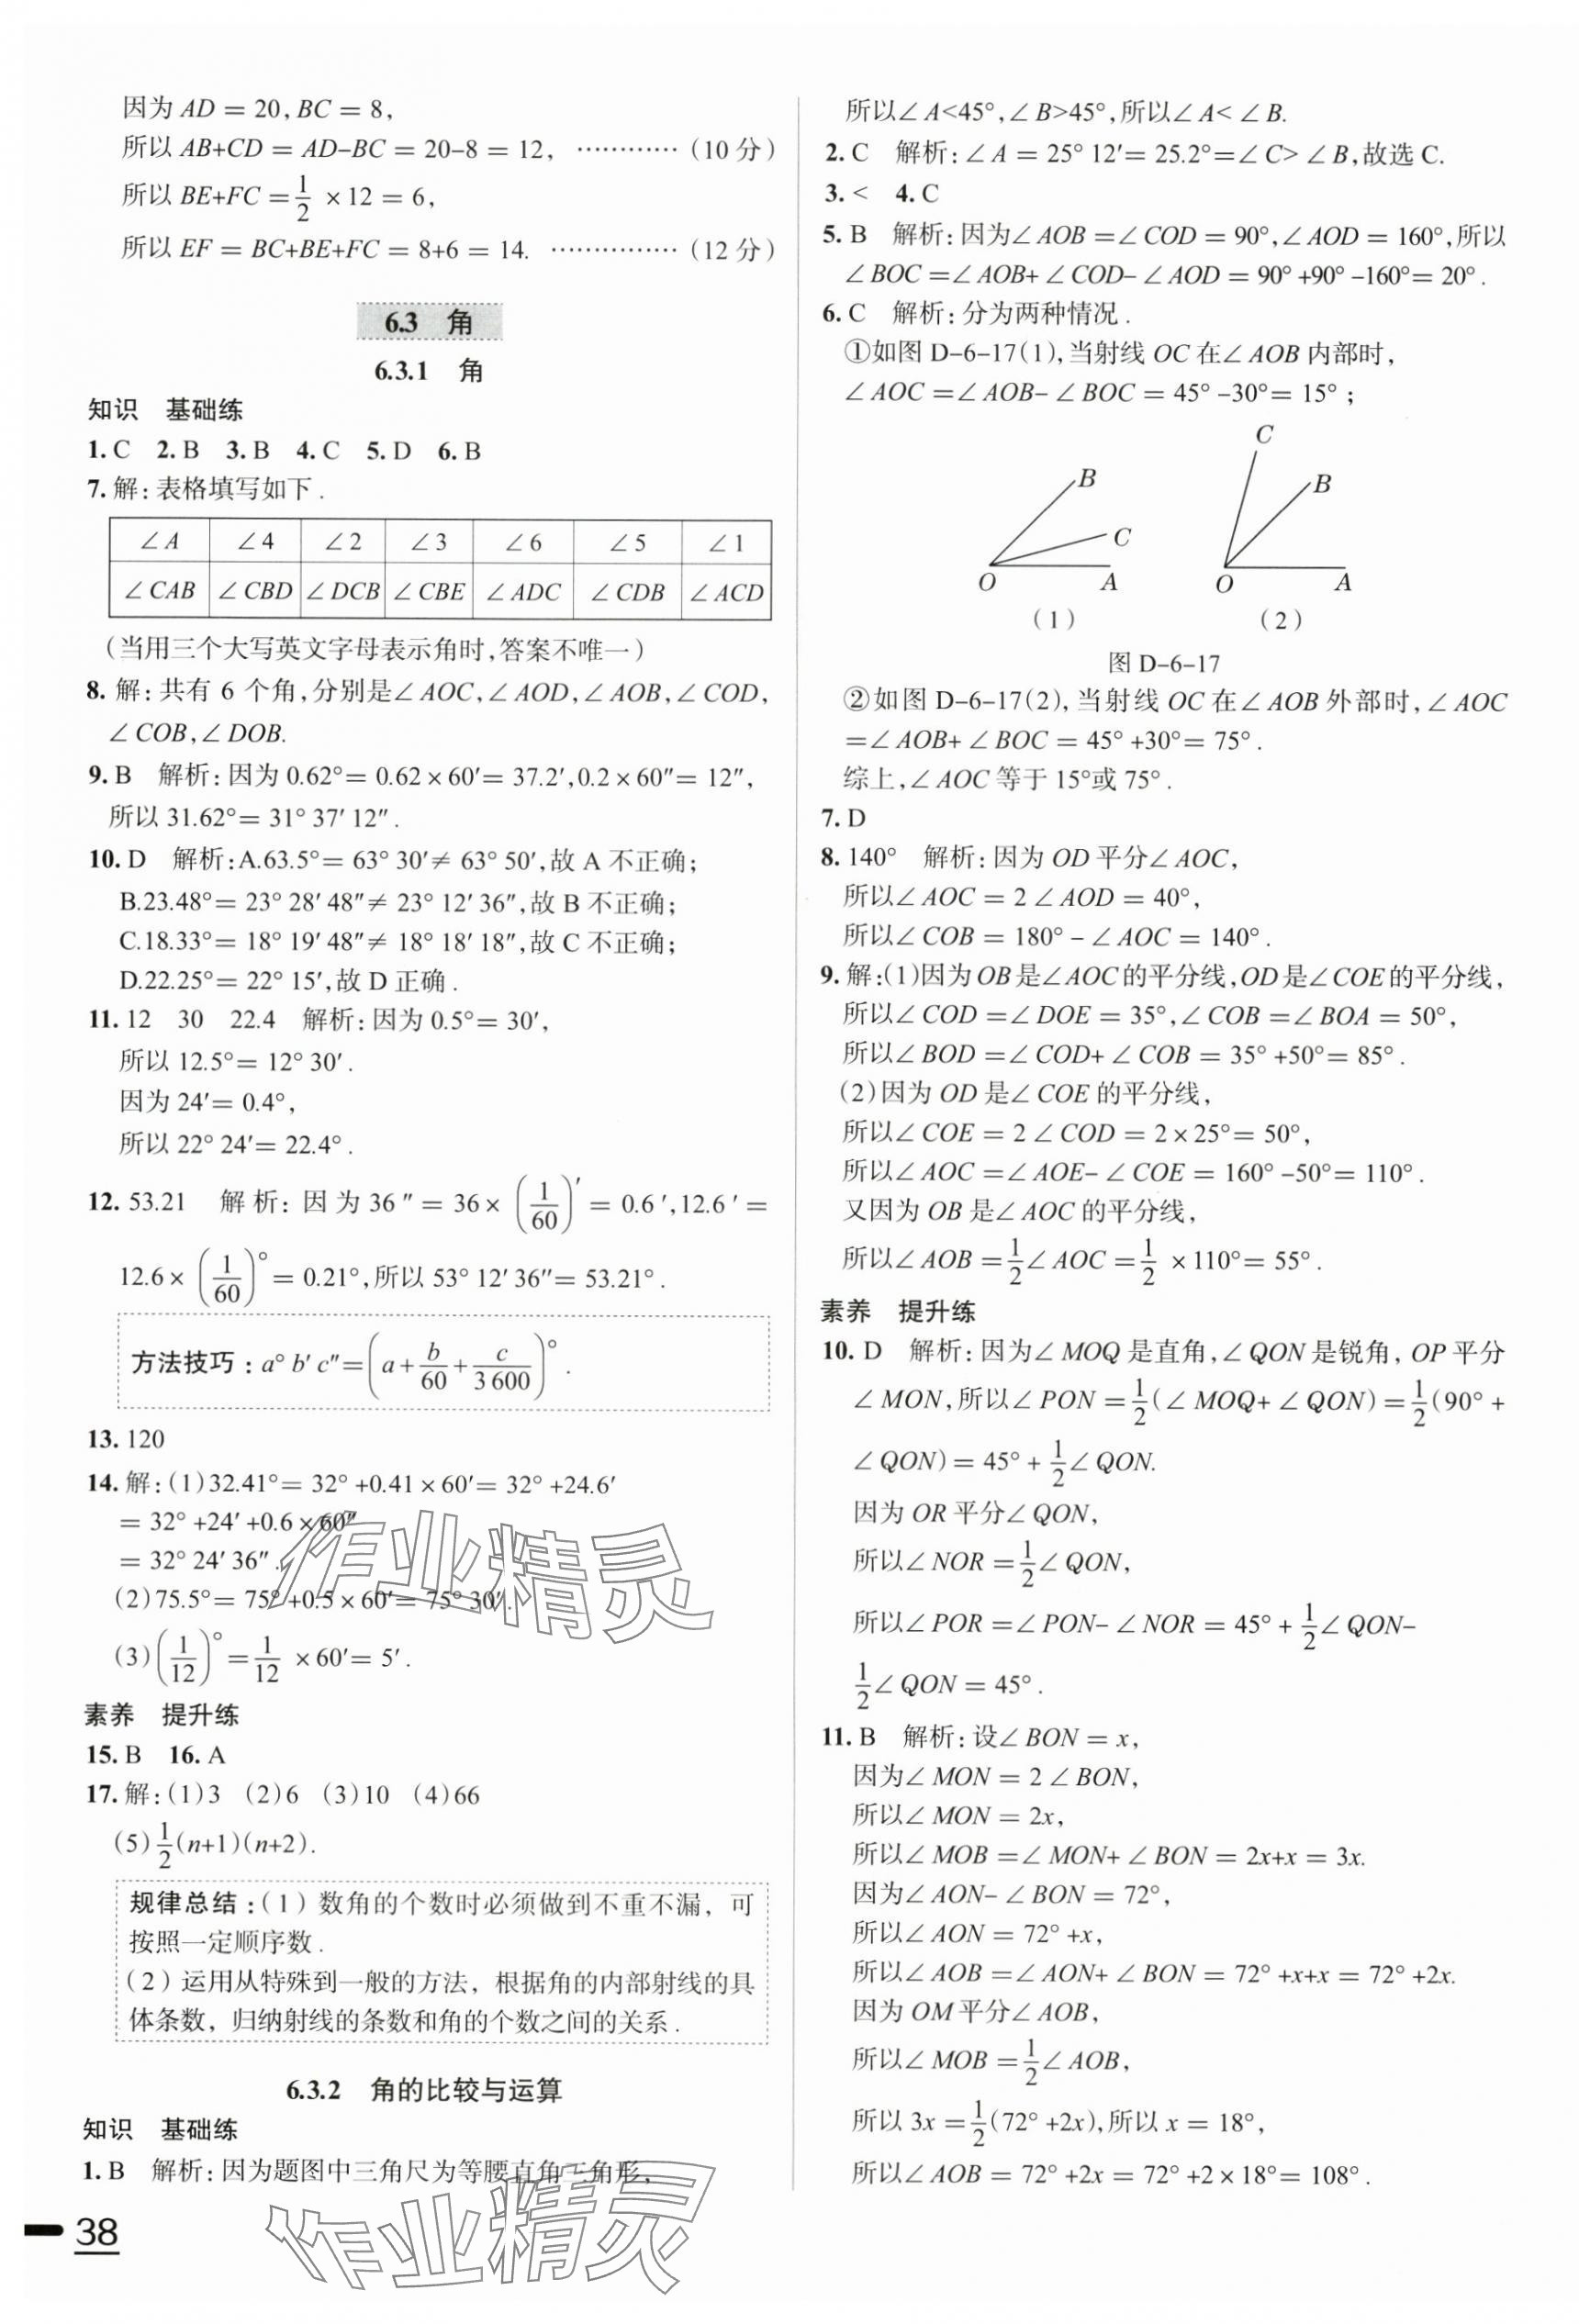 因为 AD = 20, BC = 8,
所以 AB+CD = AD-BC = 20-8 = 12, …………(10 分)
所以 BE+FC = 1/2 × 12 = 6,
所以 EF = BC+BE+FC = 8+6 = 14. ……………(12 分)
6.3 角
6.3.1 角
知识 基础练
1. C 2. B 3. B 4. C 5. D 6. B
7. 解:表格填写如下.
∠A ∠4 ∠2 ∠3 ∠6 ∠5 ∠1
∠CAB ∠CBD ∠DCB ∠CBE ∠ADC ∠CDB ∠ACD
(当用三个大写英文字母表示角时,答案不唯一)
8. 解:共有 6 个角,分别是∠AOC,∠AOD,∠AOB,∠COD,
∠COB,∠DOB.
9. B 解析:因为 0.62°= 0.62×60′= 37.2′,0.2×60″= 12″,
所以 31.62°= 31° 37′ 12″.
10. D 解析:A.63.5°= 63° 30′≠ 63° 50′,故 A 不正确;
B.23.48°= 23° 28′ 48″≠ 23° 12′ 36″,故 B 不正确;
C.18.33°= 18° 19′ 48″≠ 18° 18′ 18″,故 C 不正确;
D.22.25°= 22° 15′,故 D 正确.
11. 12 30 22.4 解析:因为 0.5°= 30′,
所以 12.5°= 12° 30′.
因为 24′= 0.4°,
所以 22° 24′= 22.4°.
12. 53.21 解析:因为 36″ = 36×(1/60)′ = 0.6′,12.6′ =
12.6×(1/60)°= 0.21°,所以 53° 12′ 36″= 53.21°.
方法技巧:a° b′ c″=(a+b/60+c/3 600)°.
13. 120
14. 解:(1)32.41°= 32° +0.41×60′= 32° +24.6′
= 32° +24′ +0.6×60″
= 32° 24′ 36″.
(2)75.5°= 75° +0.5×60′= 75° 30′.
(3)(1/12)°=1/12 ×60′= 5′.
素养 提升练
15. B 16. A
17. 解:(1)3 (2)6 (3)10 (4)66
(5)1/2(n+1)(n+2).
规律总结:(1)数角的个数时必须做到不重不漏,可
按照一定顺序数.
(2)运用从特殊到一般的方法,根据角的内部射线的具
体条数,归纳射线的条数和角的个数之间的关系.
6.3.2 角的比较与运算
知识 基础练
1. B 解析:因为题图中三角尺为等腰直角三角形,
38
所以∠A<45°,∠B>45°,所以∠A< ∠B.
2. C 解析:∠A = 25° 12′= 25.2°=∠C> ∠B,故选 C.
3. < 4. C
5. B 解析:因为∠AOB =∠COD = 90°,∠AOD = 160°,所以
∠BOC =∠AOB+ ∠COD- ∠AOD = 90° +90° -160°= 20°.
6. C 解析:分为两种情况.
①如图 D-6-17(1),当射线 OC 在∠AOB 内部时,
∠AOC =∠AOB- ∠BOC = 45° -30°= 15°;
C
B B
C
O A O A
(1) (2)
图 D-6-17
②如图 D-6-17(2),当射线 OC 在∠AOB 外部时,∠AOC
=∠AOB+ ∠BOC = 45° +30°= 75°.
综上,∠AOC 等于 15°或 75°.
7. D
8. 140° 解析:因为 OD 平分∠AOC,
所以∠AOC = 2 ∠AOD = 40°,
所以∠COB = 180° - ∠AOC = 140°.
9. 解:(1)因为 OB 是∠AOC 的平分线,OD 是∠COE 的平分线,
所以∠COD =∠DOE = 35°,∠COB =∠BOA = 50°,
所以∠BOD =∠COD+ ∠COB = 35° +50°= 85°.
(2)因为 OD 是∠COE 的平分线,
所以∠COE = 2 ∠COD = 2×25°= 50°,
所以∠AOC =∠AOE- ∠COE = 160° -50°= 110°.
又因为 OB 是∠AOC 的平分线,
所以∠AOB =1/2∠AOC =1/2 ×110°= 55°.
素养 提升练
10. D 解析:因为∠MOQ 是直角,∠QON 是锐角, OP 平分
∠MON,所以∠PON =1/2(∠MOQ+ ∠QON)=1/2(90° +
∠QON)= 45° +1/2∠QON.
因为 OR 平分∠QON,
所以∠NOR =1/2∠QON,
所以∠POR =∠PON- ∠NOR = 45° +1/2∠QON-
1/2∠QON = 45°.
11. B 解析:设∠BON = x,
因为∠MON = 2 ∠BON,
所以∠MON = 2x,
所以∠MOB =∠MON+ ∠BON = 2x+x = 3x.
因为∠AON- ∠BON = 72°,
所以∠AON = 72° +x,
所以∠AOB =∠AON+ ∠BON = 72° +x+x = 72° +2x.
因为 OM 平分∠AOB,
所以∠MOB =1/2∠AOB,
所以 3x =1/2(72° +2x),所以 x = 18°,
所以∠AOB = 72° +2x = 72° +2×18°= 108°.
作业精灵
作业精灵